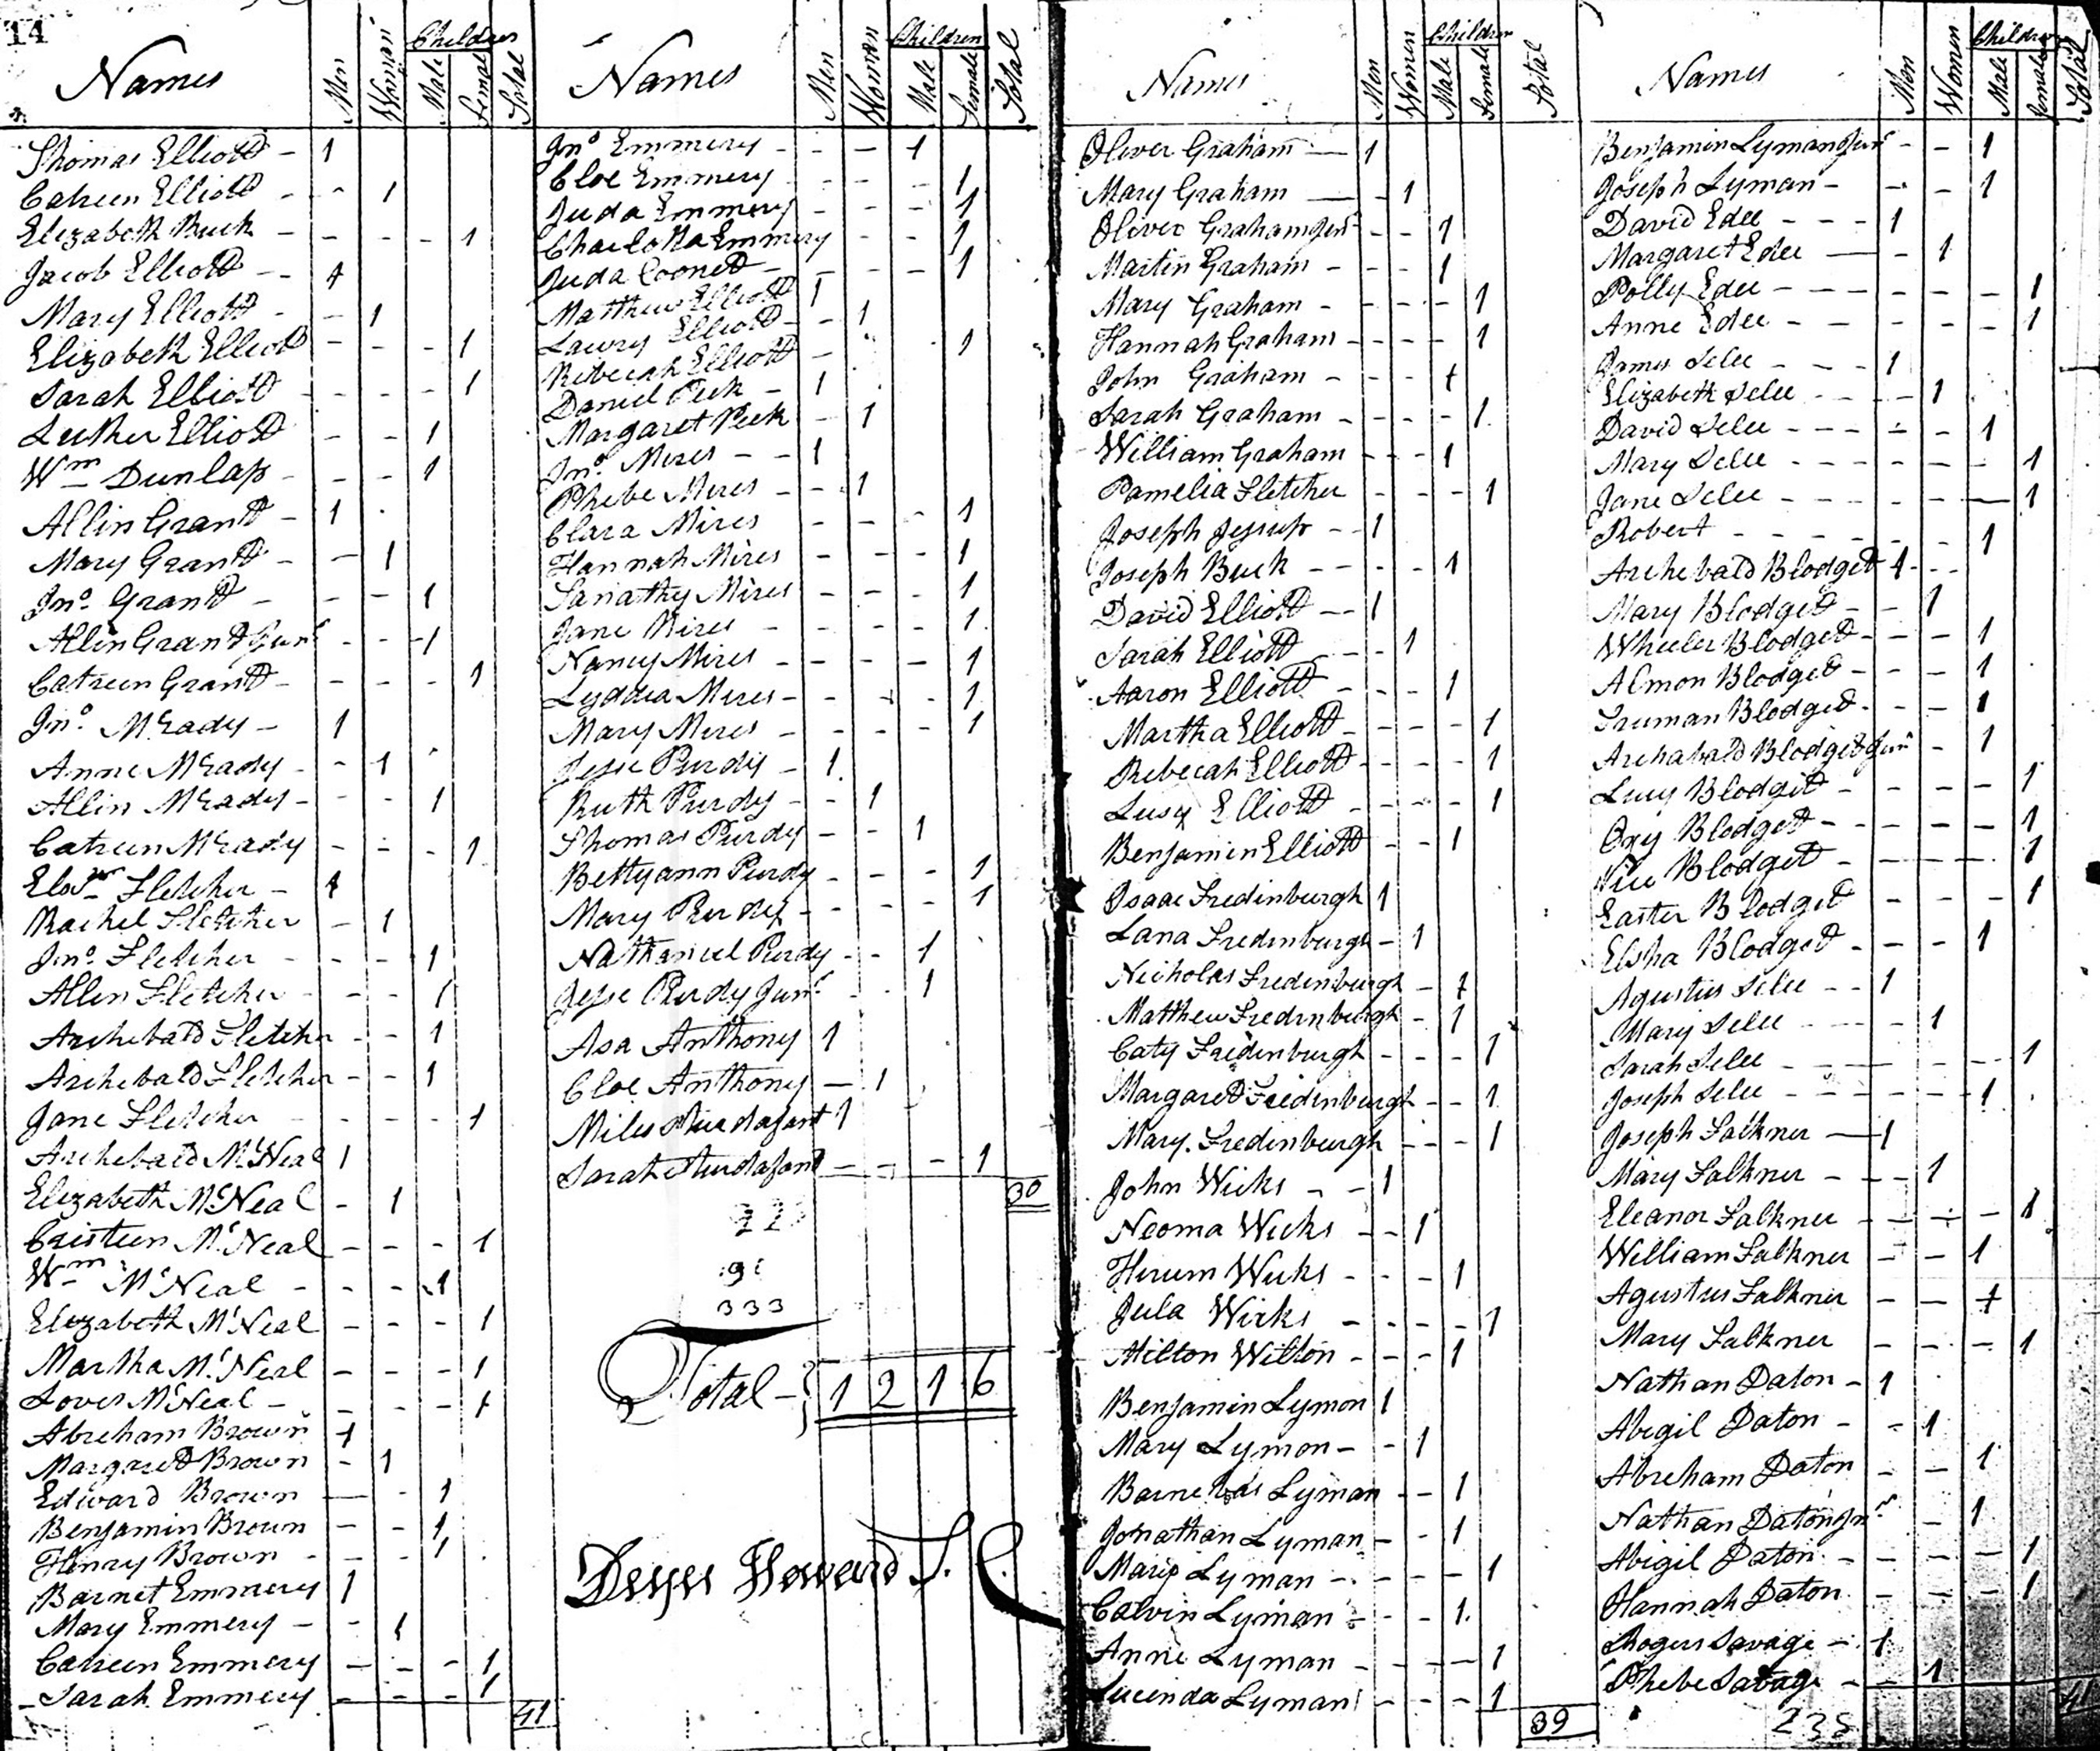 14
Names Men Woman Children Male Female Total
Thomas Elliott - 1
Catreen Elliott - - 1
Elizabeth Buck - - - - 1
Jacob Elliott - - 1
Mary Elliott - - 1
Elizabeth Elliott - - - 1
Sarah Elliott - - - - 1
Luther Elliott - - 1
Wm Dunlap - - - 1
Allin Grant - 1
Mary Grant - - 1
Jno. Grant - - - 1
Allin Grant Junr - - - 1
Catreen Grant - - - - 1
Jno. McCady - 1
Anne McCady - - 1
Allin McCady - - - 1
Catreen McCady - - - 1
Fletcher - 1
Rachel Fletcher - 1
Jno. Fletcher - - - 1
Allen Fletcher - - - 1
Archebald Fletcher - - 1
Archebald Fletcher - - 1
Jane Fletcher - - - - 1
Archebald McNeal 1
Elizabeth McNeal - 1
Cristeen McNeal - - - 1
Wm McNeal - - - 1
Elizabeth McNeal - - - 1
Martha McNeal - - - 1
Lovis McNeal - - - - 1
Abreham Brown 1
Margaret Brown - 1
Edward Brown - - 1
Benjamin Brown - - 1
Henry Brown - - - 1
Barnet Emmery 1
Mary Emmery - - 1
Catreen Emmery - - - 1
Sarah Emmery - - - 1
41
Names Men Women Children Male Female Total
Jno. Emmery - - - 1
Cloe Emmery - - - - 1
Juda Emmery - - - 1
Charlotta Emmery - - 1
Juda Cooned - - - - 1
Matthew Elliott 1
Laury Elliott - - 1
Rebecah Elliott - 1
Daniel Peek - 1
Margaret Peek - 1
Jno. Mires - - 1
Phebe Mires - - 1
Clara Mires - - - 1
Hannah Mires - - - 1
Sanathy Mires - - - 1
Jane Mires - - - - 1
Nancy Mires - - - - 1
Lyddia Mires - - - - 1
Mary Mires - - - - 1
Jesse Purdy - 1
Ruth Purdy - - 1
Thomas Purdy - - 1
Bettyann Purdy - - - 1
Mary Purdy - - - - 1
Nathaniel Purdy - - 1
Jesse Purdy Junr - - 1
Asa Anthony 1
Cloe Anthony - 1
Miles 1
Sarah - - - 1
30
333
Total - 1 2 1 6
Howard T. C.
Names Men Women Children Male Female Total
Oliver Graham - 1
Mary Graham - - 1
Oliver Graham Junr - - 1
Martin Graham - - - 1
Mary Graham - - - - 1
Hannah Graham - - - - 1
John Graham - - - 1
Sarah Graham - - - - 1
William Graham - - - 1
Pamelia Fletcher - - - 1
Joseph Jessup - - 1
Joseph Buck - - - - 1
David Elliott - - 1
Sarah Elliott - - 1
Aaron Elliott - - - 1
Martha Elliott - - - - 1
Rebecah Elliott - - - - 1
Lusy Elliott - - - - 1
Benjamin Elliott - - 1
Isaac Fredinburgh 1
Lana Fredinburgh - 1
Nicholas Fredenburgh - 1
Matthew Fredinburgh - 1
Caty Fredinburgh - - - 1
Margaret Fredinburgh - - 1
Mary Fredinburgh - - - 1
John Wicks - - 1
Neoma Wicks - - 1
Hirum Wicks - - - 1
Jula Wicks - - - - 1
Milton Wilton - - - 1
Benjamin Lymon 1
Mary Lymon - - 1
Barnebas Lyman - - 1
Jonathan Lyman - - 1
Mary Lyman - - - - 1
Calvin Lyman - - - 1
Anne Lyman - - - - 1
Lucinda Lyman - - - 1
39
Names Men Women Children Male Female Total
Benjamin Lyman Junr - - 1
Joseph Lyman - - - 1
David Edee - - - 1
Margaret Edee - - 1
Polly Edee - - - - - - 1
Anne Edee - - - - - - 1
James Selee - - - 1
Elizabeth Selee - - - 1
David Selee - - - - - 1
Mary Selee - - - - - - 1
Jane Selee - - - - - - 1
Robert - - - - - - 1
Archebald Blodget 1 - - -
Mary Blodget - - 1
Wheeler Blodget - - - 1
Almon Blodget - - - 1
Truman Blodget - - - 1
Archabald Blodget Junr - 1
Lucy Blodget - - - - 1
Blodget - - - - 1
Blodget - - - - 1
Easter Blodget - - - 1
Elsha Blodget - - - 1
Agustus Selee - - 1
Mary Selee - - - 1
Sarah Selee - - - - - 1
Joseph Selee - - - - - 1
Joseph Falkner - 1
Mary Falkner - - - 1
Eleanor Falkner - - - 1
William Falkner - - 1
Agustus Falkner - - 1
Mary Falkner - - - 1
Nathan Daton - 1
Abigil Daton - - 1
Abreham Daton - - 1
Nathan Daton Jnr - 1
Abigil Daton - - - - 1
Hannah Daton - - - - 1
Rogers Savage - 1
Phebe Savage - - 1
41